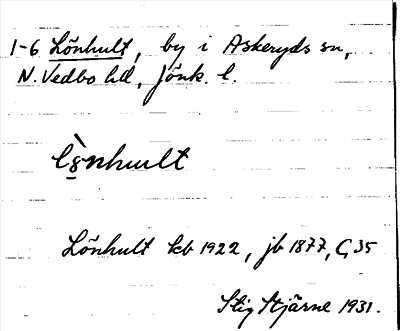 1-6 Lönhult, by i Askeryds sn,
N. Vedbo hd, Jönk. l.
lö̀nhult
Lönhult kb 1922, jb 1877, G 35
Stig Stjärne 1931.